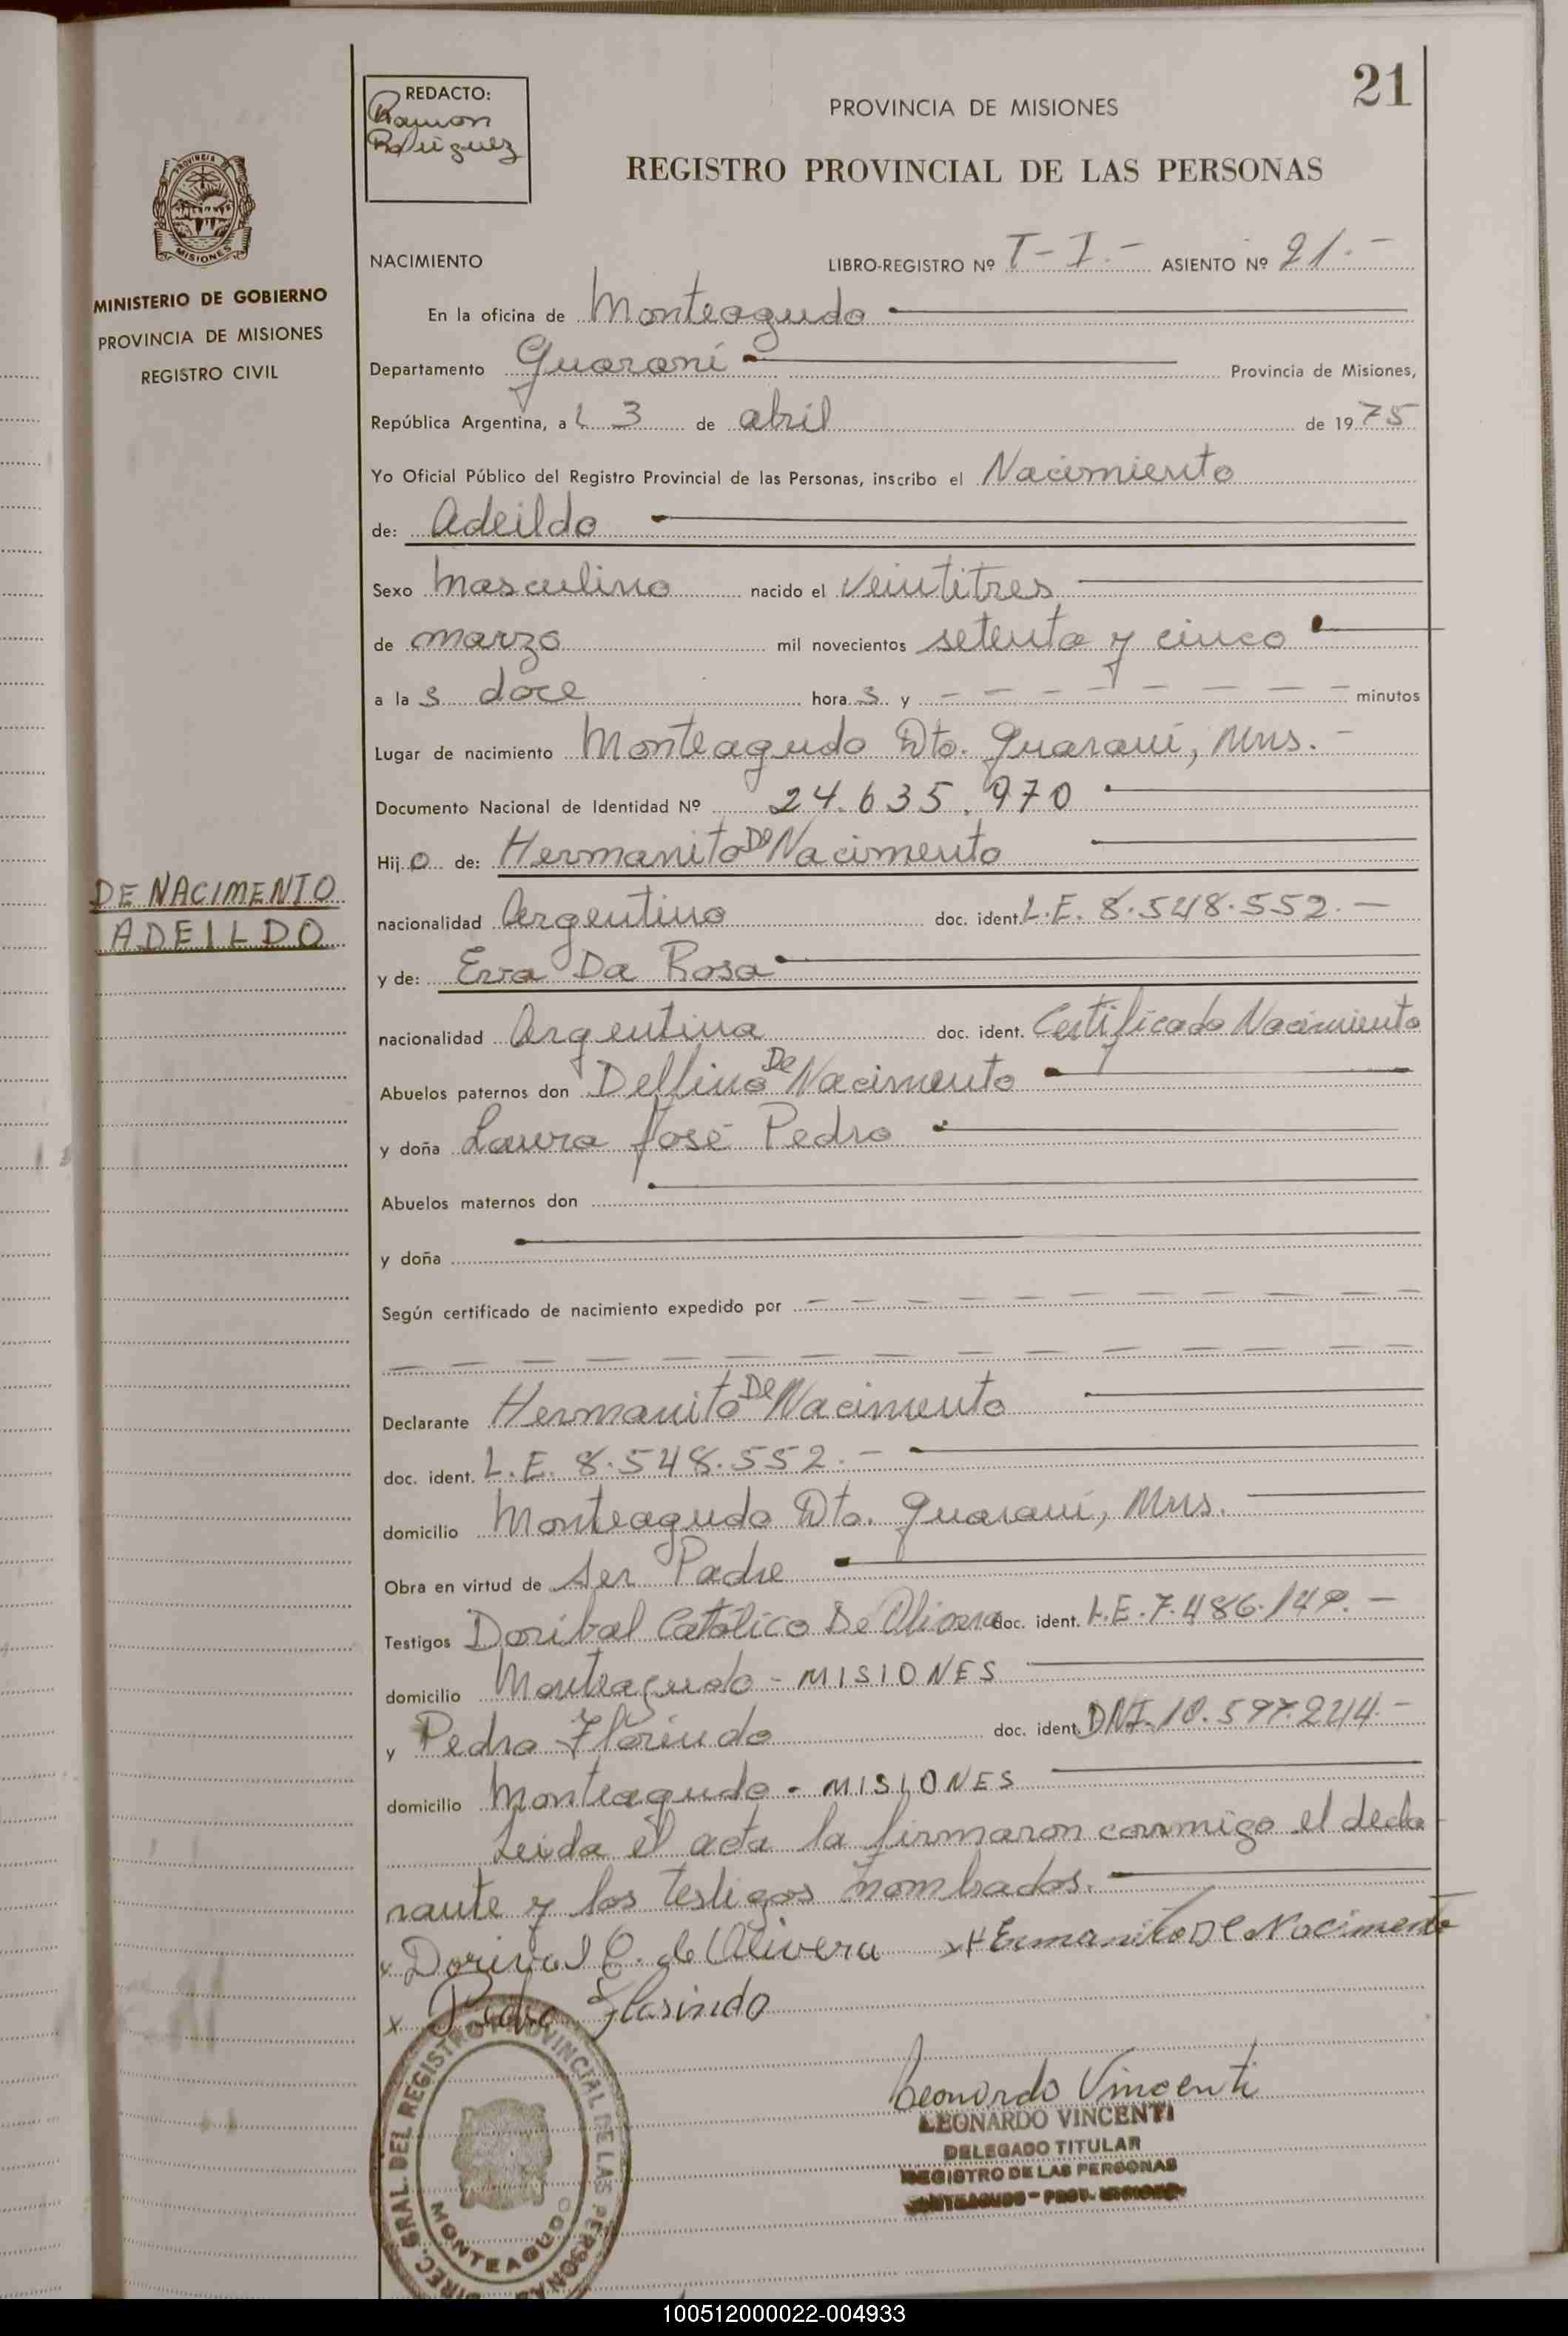 21
REDACTO:
Ramon
Rodriguez
PROVINCIA DE MISIONES
REGISTRO PROVINCIAL DE LAS PERSONAS
PROVINCIA DE
MISIONES
MINISTERIO DE GOBIERNO
PROVINCIA DE MISIONES
REGISTRO CIVIL
DE NACIMENTO
ADEILDO
NACIMIENTO LIBRO-REGISTRO Nº T-I.- ASIENTO Nº 21.-
En la oficina de Monteagudo
Departamento Guaraní Provincia de Misiones,
República Argentina, a L 3 de abril de 1975
Yo Oficial Público del Registro Provincial de las Personas, inscribo el Nacimiento
de: Adeildo
Sexo Masculino nacido el veintitres
de marzo mil novecientos setenta y cinco
a las doce horas y - - - - - - - minutos
Lugar de nacimiento Monteagudo Dto. Guaraní, Mns.-
Documento Nacional de Identidad Nº 24.635.970
Hijo de: Hermanito De Nacimento
nacionalidad Argentino doc. ident. L.E. 8.548.552.-
y de: Eva Da Rosa
nacionalidad Argentina doc. ident. Certificado Nacimiento
Abuelos paternos don Delfino De Nacimento
y doña Laura José Pedro
Abuelos maternos don
y doña
Según certificado de nacimiento expedido por - - - - - - - - -
- - - - - - - - - - - - - - -
Declarante Hermanito De Nacimento
doc. ident. L.E. 8.548.552.-
domicilio Monteagudo Dto. Guaraní, Mns.
Obra en virtud de ser Padre
Testigos Doribal Católico De Olivera doc. ident. L.E. 7.486.149.-
domicilio Monteagudo - MISIONES
y Pedro Florindo doc. ident. DNI. 10.597.244.-
domicilio Monteagudo - MISIONES
Leida el acta la firmaron conmigo el decla
rante y los testigos nombrados.
x Dorival C. de Olivera x HErmanito De Nacimento
x Pedro Florindo
DIREC. GRAL. DEL REGISTRO PROVINCIAL DE LAS PERSONAS
MONTEAGUDO
Leonardo Vincenti
LEONARDO VINCENTI
DELEGADO TITULAR
REGISTRO DE LAS PERSONAS
MONTEAGUDO - PROV. MISIONES
100512000022-004933